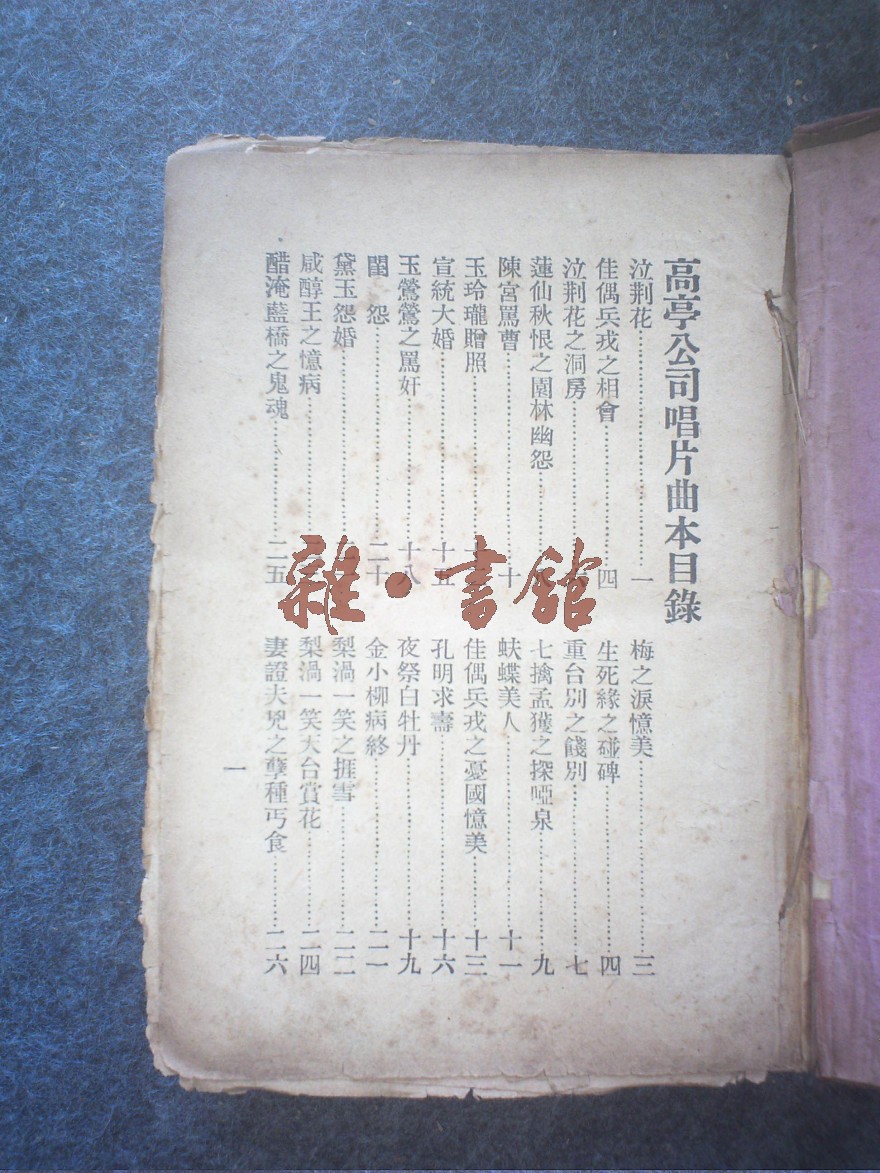 高亭公司唱片曲本目錄
泣荆花⋯⋯一
梅之淚憶美⋯⋯三
佳偶兵戎之相會⋯⋯四
生死緣之碰碑⋯⋯四
泣荆花之洞房⋯⋯
重台別之餞別⋯⋯七
蓮仙秋恨之園林幽怨⋯⋯
七擒孟獲之探啞泉⋯⋯九
陳宮罵曹⋯⋯十
蚨蝶美人⋯⋯十一
玉玲瓏贈照⋯⋯
佳偶兵戎之憂國憶美⋯⋯十三
宣統大婚⋯⋯十五
孔明求壽⋯⋯十六
玉鶯鶯之罵奸⋯⋯十八
夜祭白牡丹⋯⋯十九
閨怨⋯⋯二十
金小柳病終⋯⋯二一
黛玉怨婚⋯⋯
梨渦一笑之捱雪⋯⋯二二
咸醇王之憶病⋯⋯
梨渦一笑天台賞花⋯⋯二四
醋淹藍橋之鬼魂⋯⋯二五
妻證夫兇之孽種丐食⋯⋯二六
一
雜·書館